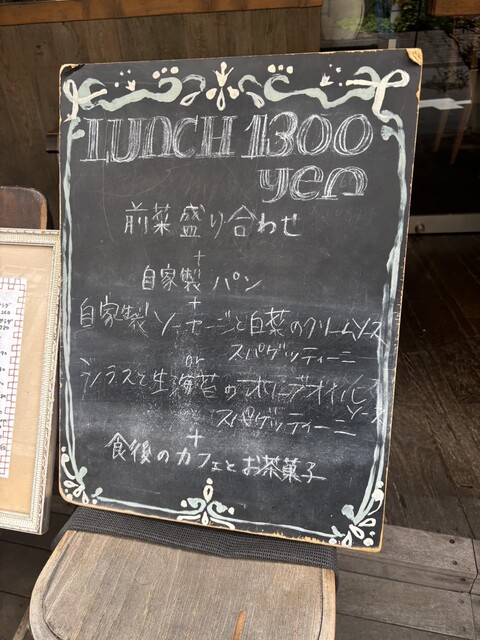 LUNCH 1300
yen
前菜盛り合わせ
+
自家製 パン
+
自家製 ソーセージと白菜のクリームソース
スパゲッティーニ
or
シラスと生海苔のオリーブオイル
ソース
スパゲッティーニ
+
食後のカフェとお茶菓子